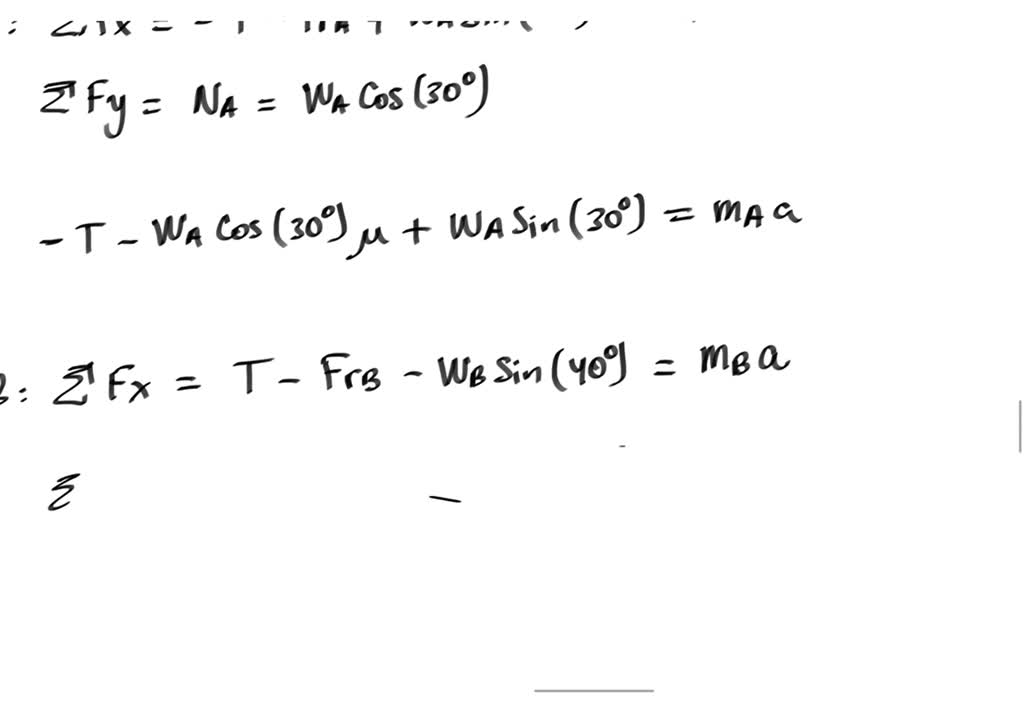 ΣFy = NA = WA Cos(30°)
-T - WA Cos(30°)μ + WA Sin(30°) = mA a
: ΣFx = T - FrB - WB Sin(40°) = mB a
Σ -